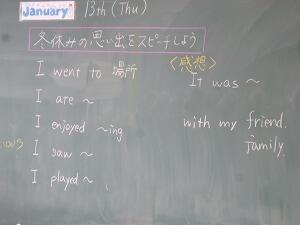 January 13th (Thu)
冬休みの思い出をスピーチしよう
I went to 場所
I ate ~
I enjoyed ~ing
I saw ~
I played ~
<感想>
It was ~
with my friend.
family.